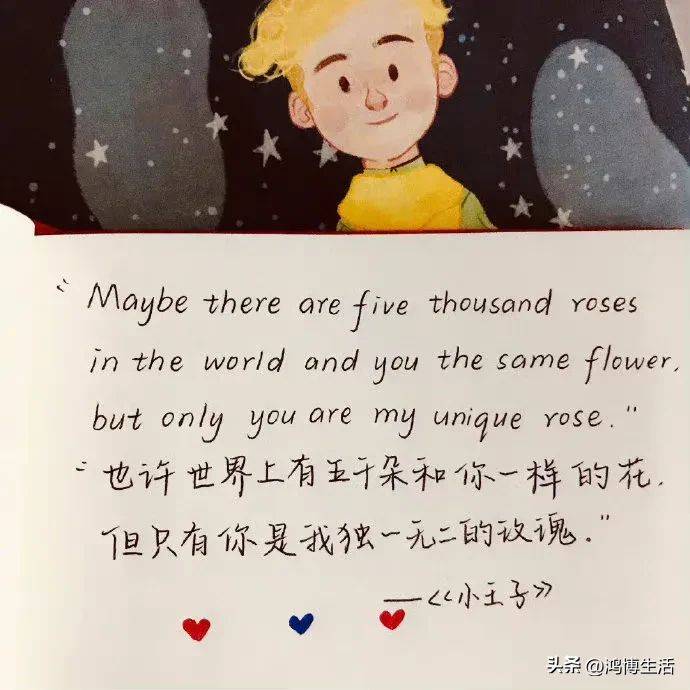 "Maybe there are five thousand roses
in the world and you the same flower,
but only you are my unique rose."
"也许世界上有五千朵和你一样的花,
但只有你是我独一无二的玫瑰."
——《小王子》
头条 @鸿博生活